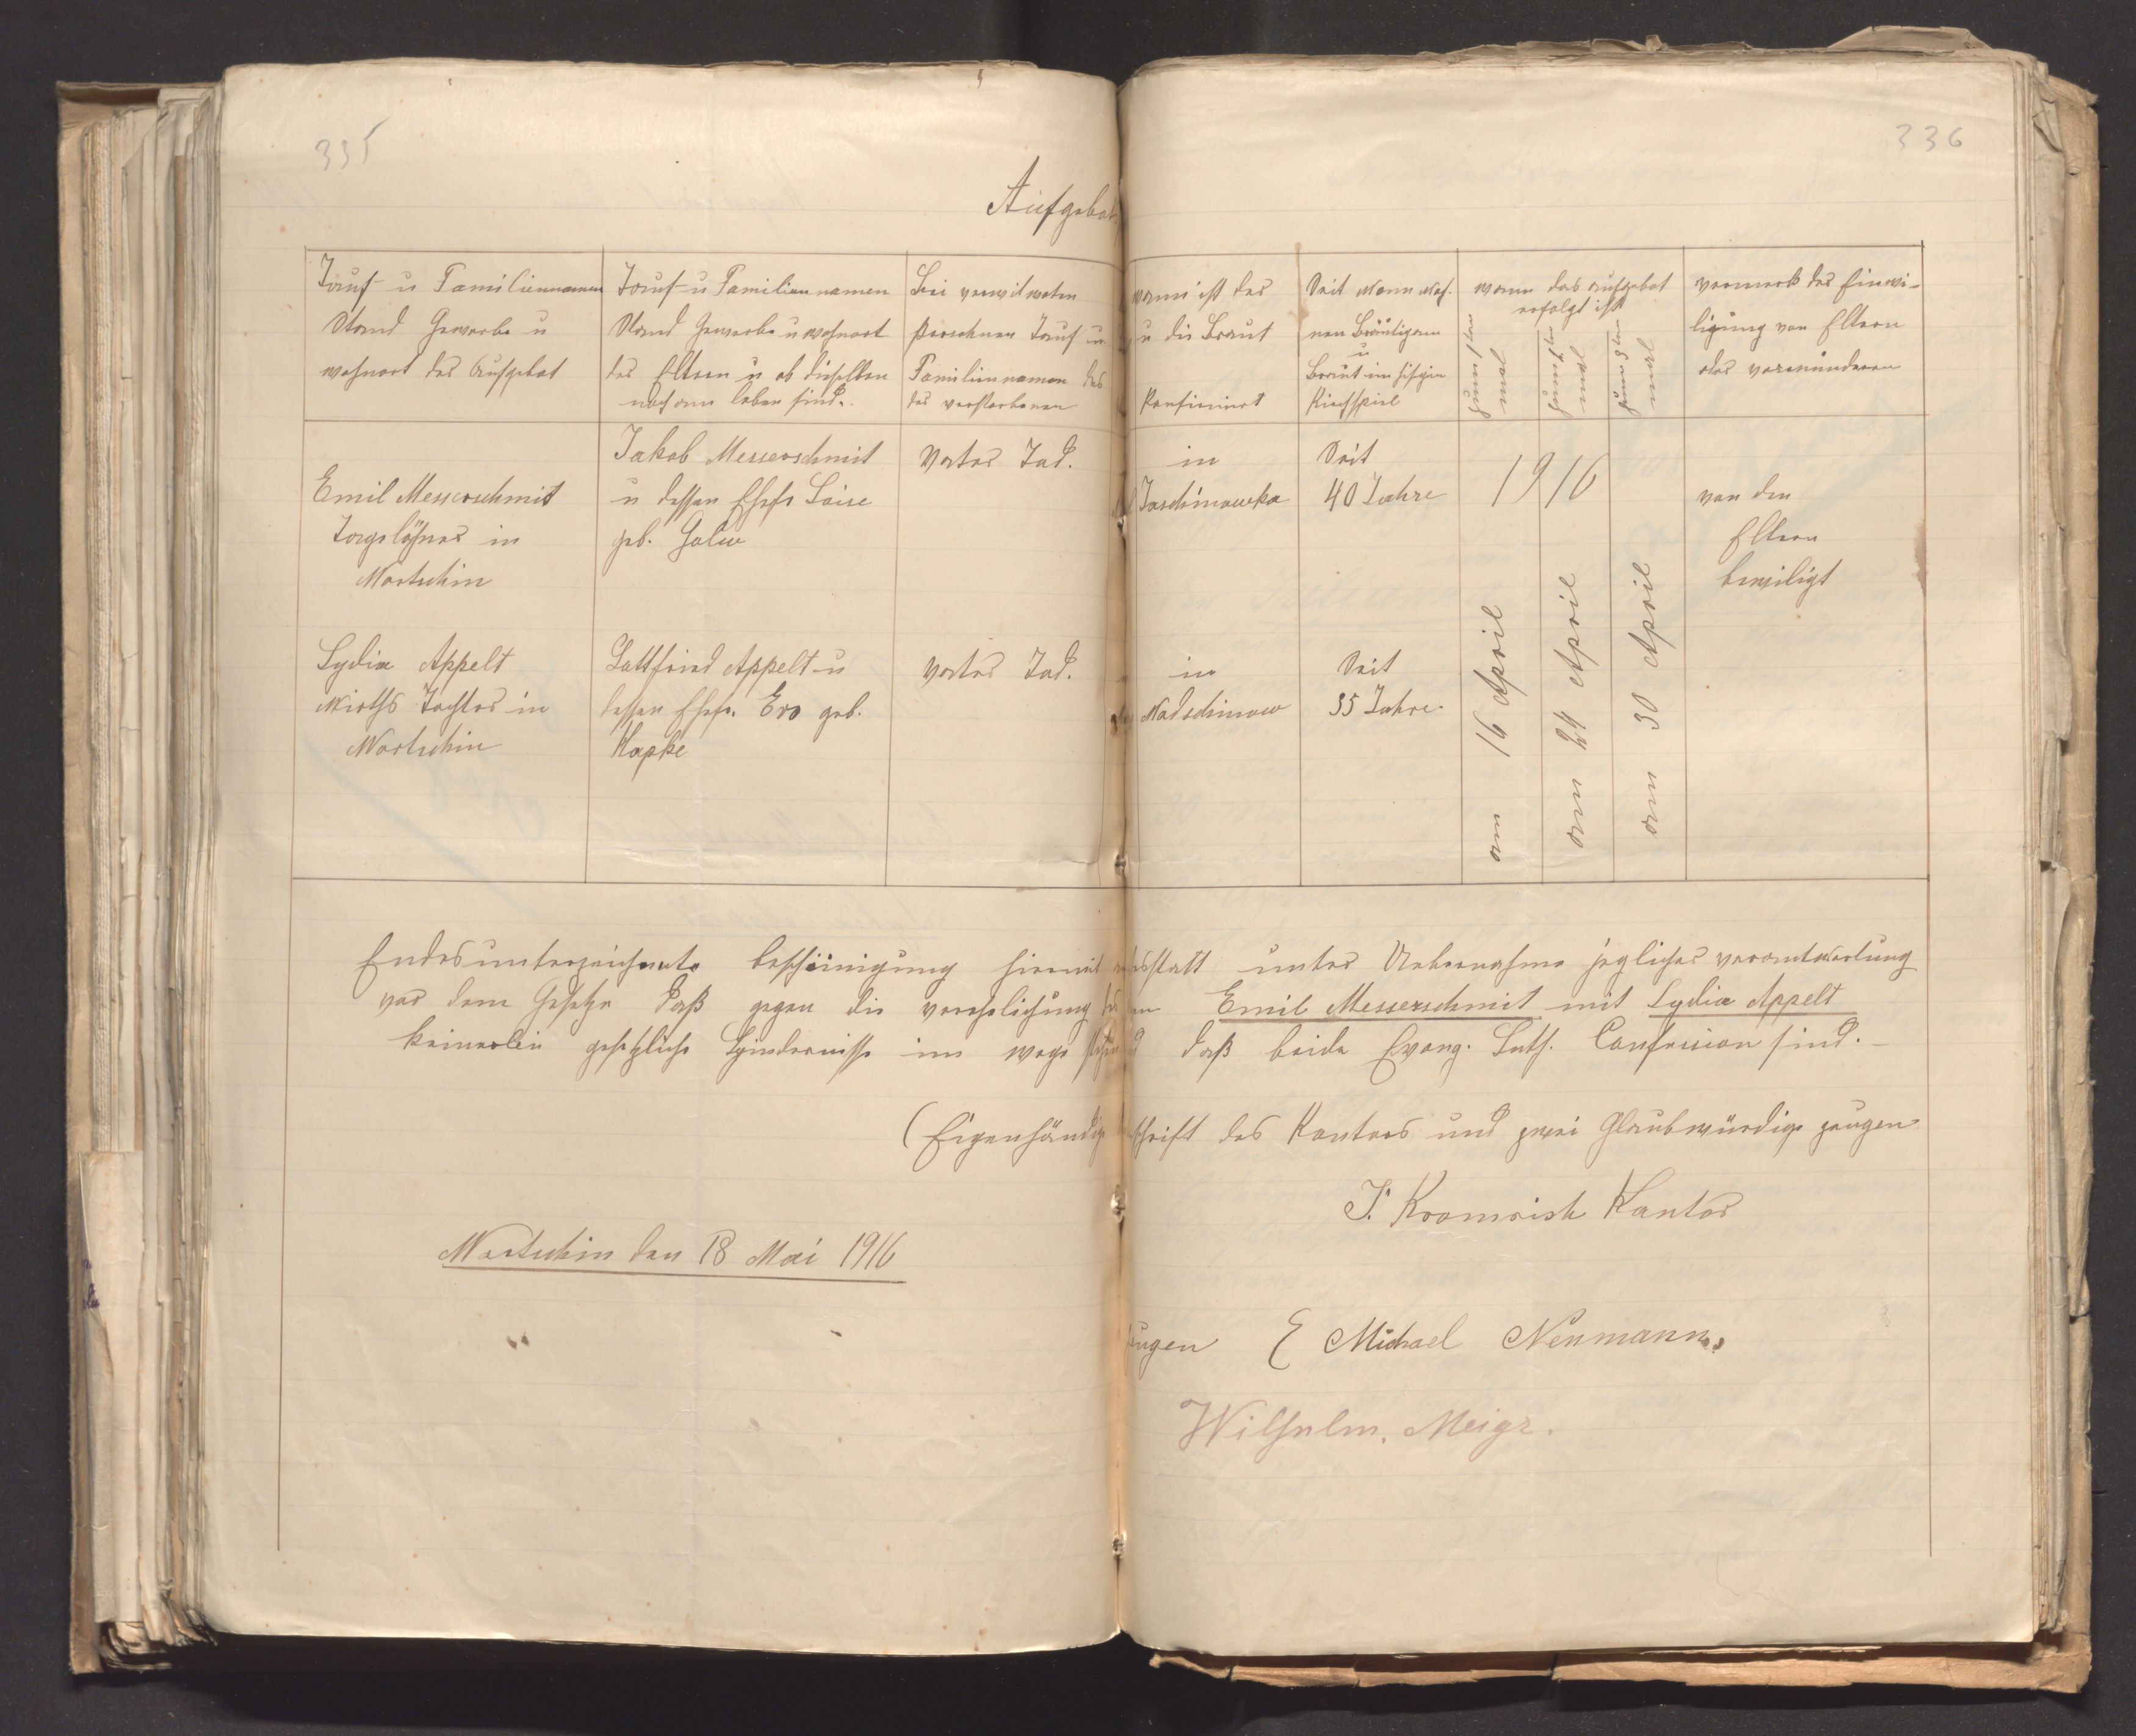 335
336
Aufgebot
Tauf- u Familiennamen
Stand Gewerbe u
wohnort der Aufgebot
Tauf- u Familiennamen
Stand Gewerbe u wohnort
der Eltern u ob dieselben
noch am leben sind.
Bei verwitweten
Perschnen Tauf- u
Familiennamen des
der verstorbenen
wann ist der
u die Braut
Konfirmirt
Seit wann woh.
nen Bräutigam
u
Braut im hisigen
Kirchspiel
wann das aufgebot
erfolgt ist
zum 1ten
mal
zum 2ten
mal
zum 3ten
mal
vermerk der Einwi-
ligung von Eltern
oder vormünderen
Emil Messerschmit
Tagelöhner in
Wortschin
Jakob Messerschmit
u dessen Ehefr Loise
geb. Golw
Vater Tod.
in
Jaschinowka
Seit
40 Jahre
1916
von den
Eltern
bewiligt
Lydia Appelt
Wirths Tochter in
Wortschin
Gottfried Appelt u
dessen Ehefr. Eva geb.
Kapke
Vater Tod.
in
Wadschinow
Seit
35 Jahre.
am 16 April
am 24 April
am 30 April
Endesunterzeichnete bescheinigung hiermit statt unter Uebernahme jeglicher verantwortung
vor dem Gesetze daß gegen die verehelichung Emil Messerschmit mit Lydia Appelt
keinerlei gesetzliche Hindernisse im wege daß beide Evang. Luth. Confession sind.–
(Eigenhändige schrift des Kantors und zwei Glaubwürdige zeugen
J. Kromrich Kantor
Wortschin den 18 Mai 1916
zeugen Michael Neumann.
Wilhelm. Meigr.